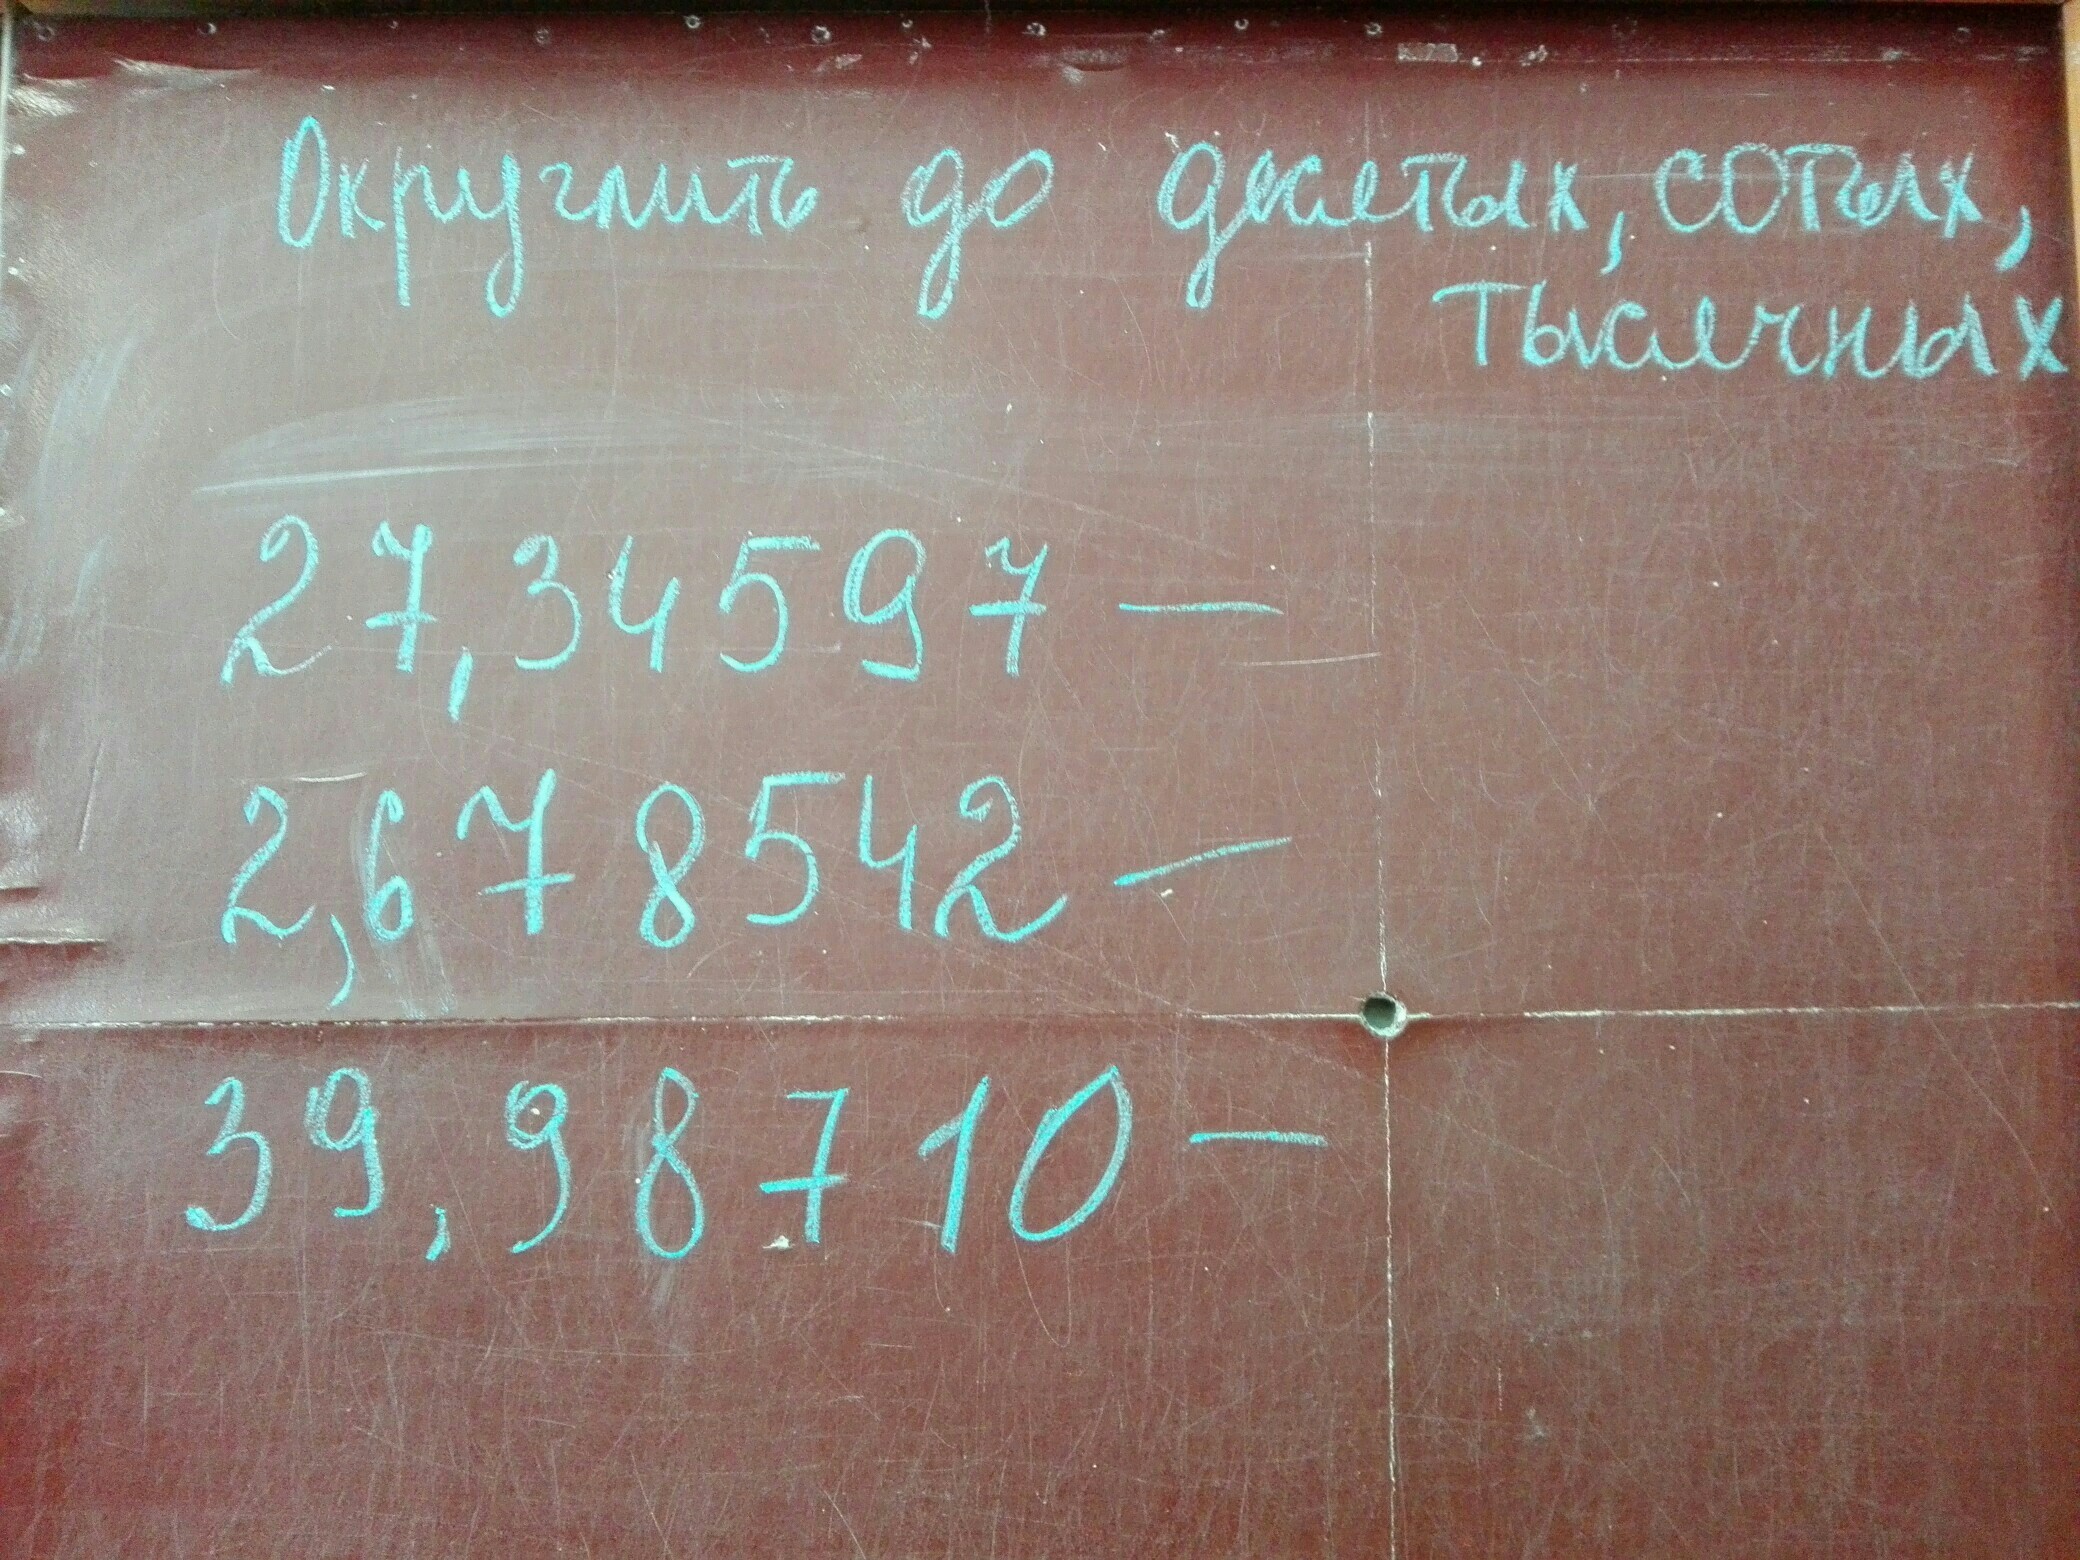 Округлить до десятых, сотых,
тысячных
27,34597 —
2,678542 —
39,98710 —